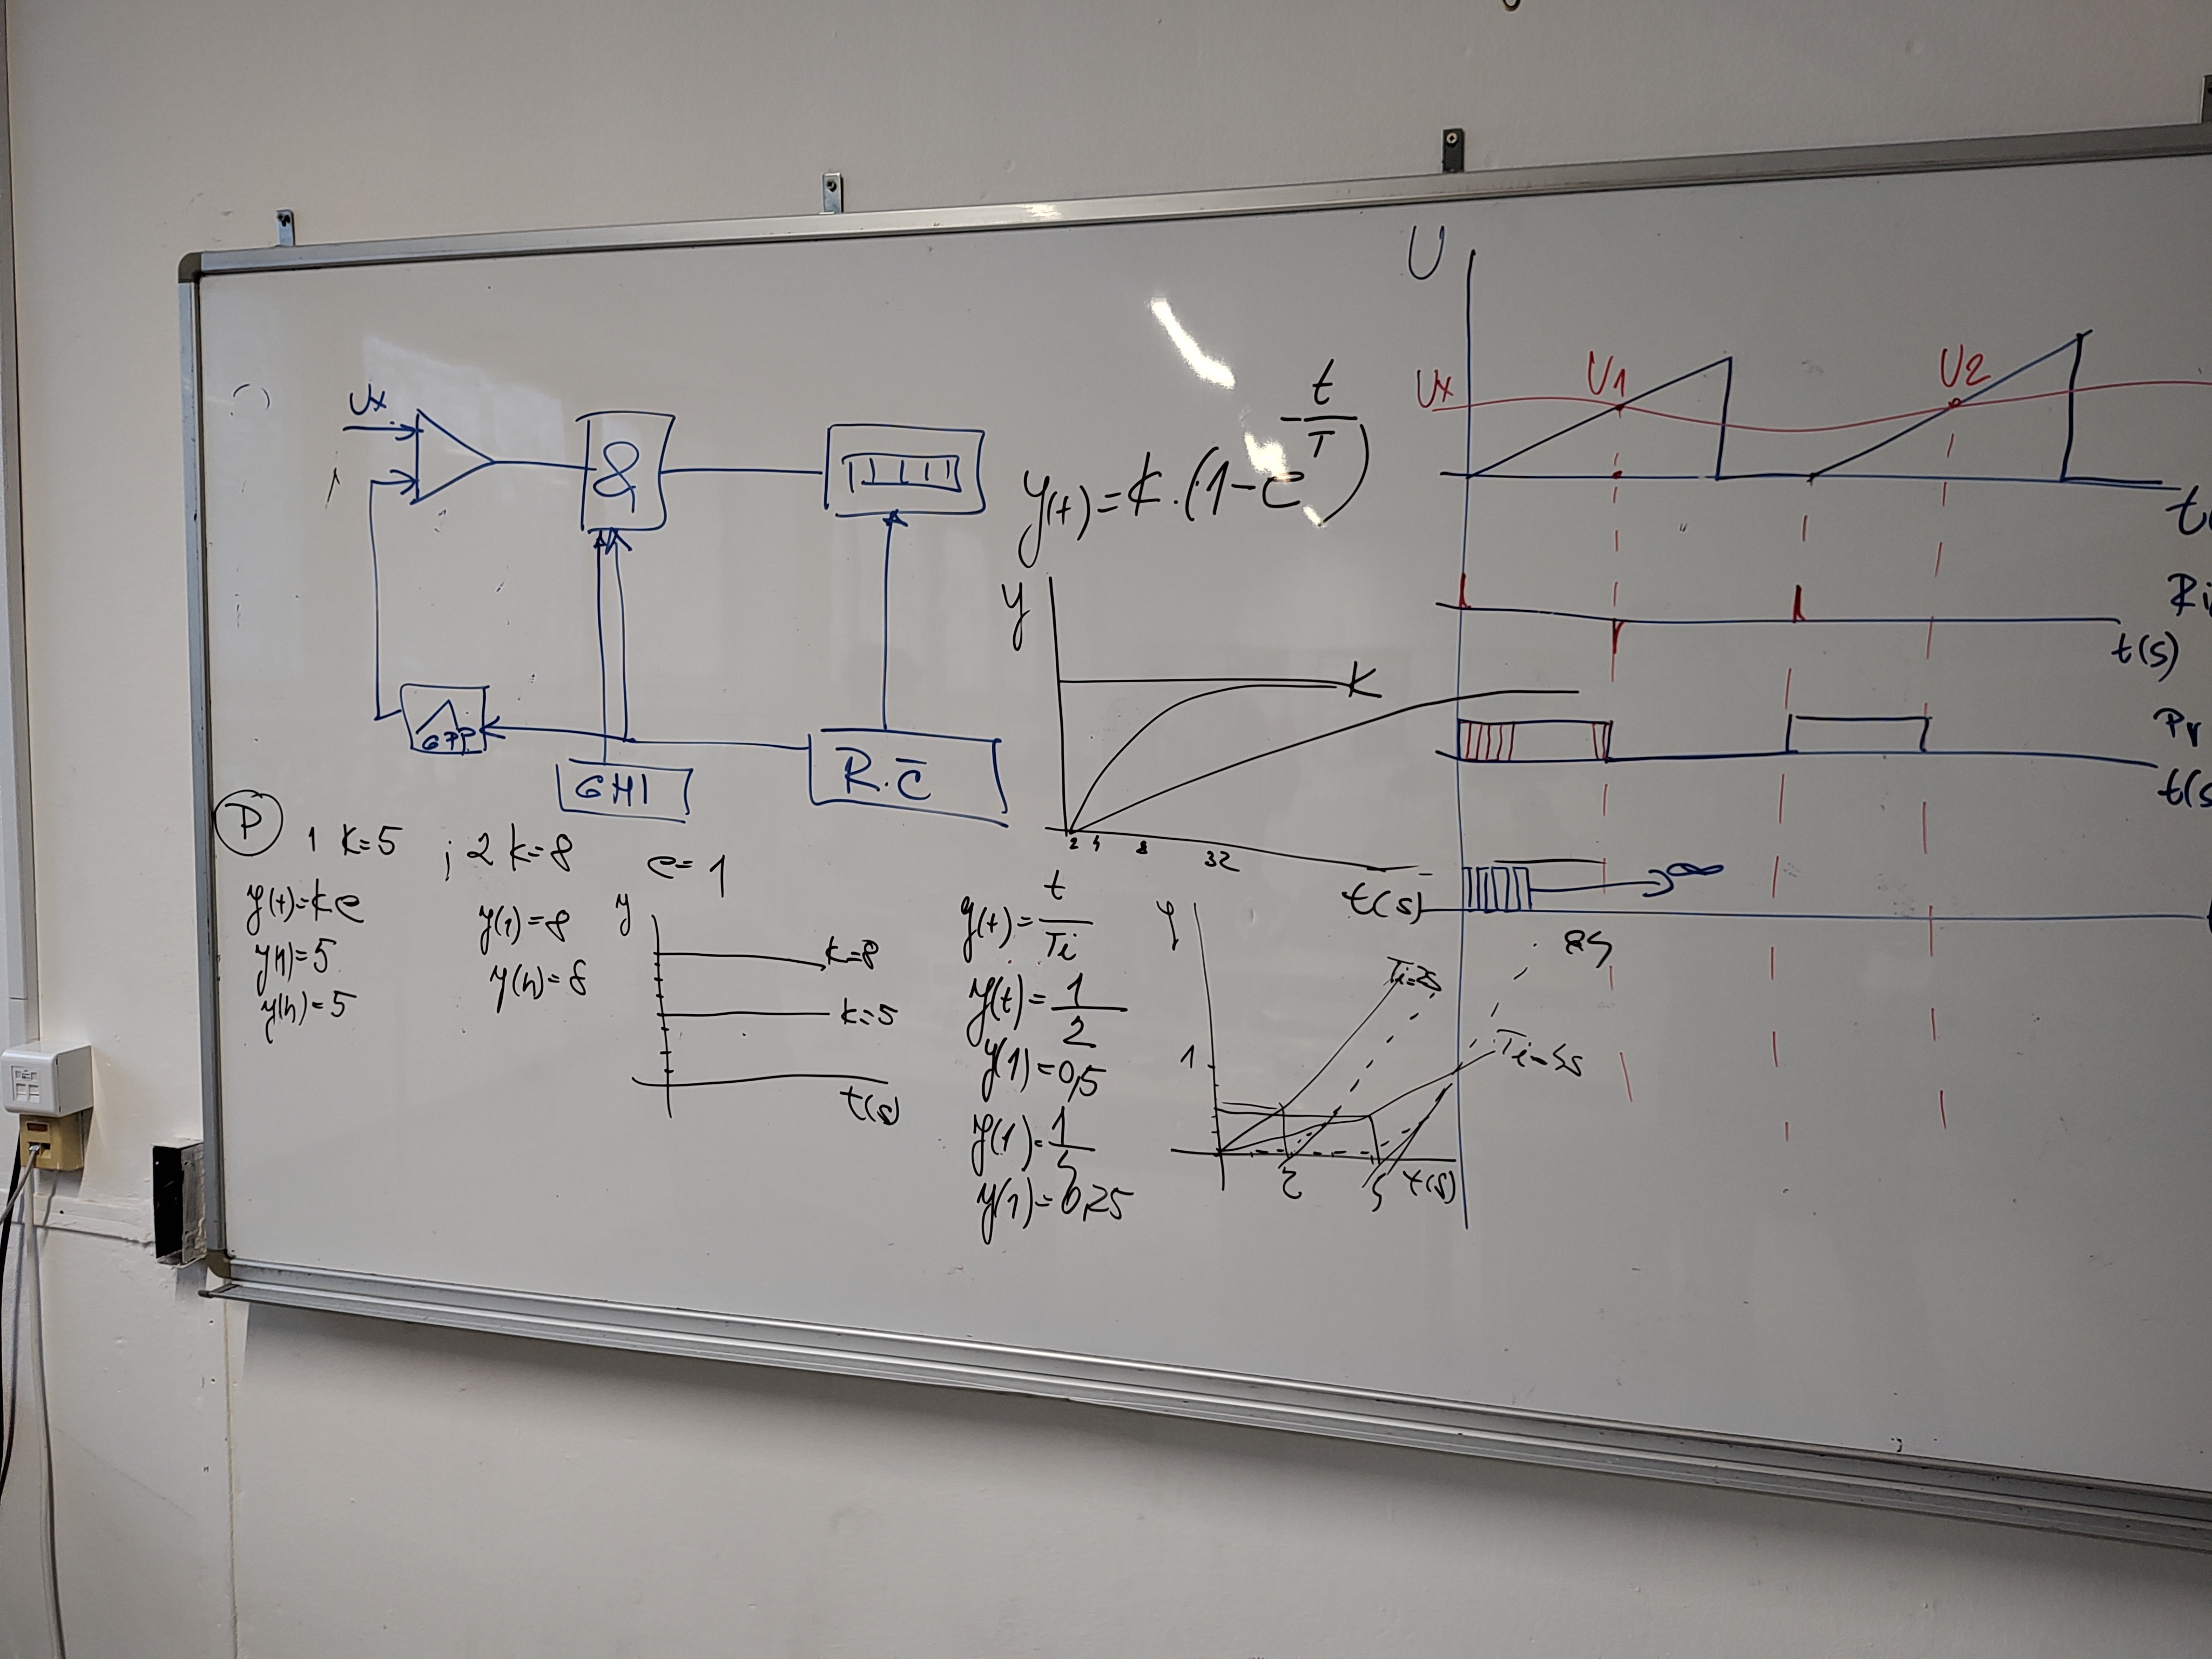 Ux
&
GPP
GHI
R.Č
y(t)=k.(1-e^-t/T)
y
K
2 4 8 32
t(s)
U
Ux
U1
U2
t(
Ri
t(s)
Pr
t(s
∞
P
1 k=5 ; 2 k=8 e=1
y(t)=ke
y(1)=5
y(n)=5
y(1)=8
y(n)=8
y
k=8
k=5
t(s)
y(t)=t/Ti
y(t)=1/2
y(1)=0,5
y(1)=1/5
y(1)=0,25
y
1
Ti=2s
Ti=5s
2 5 t(s)